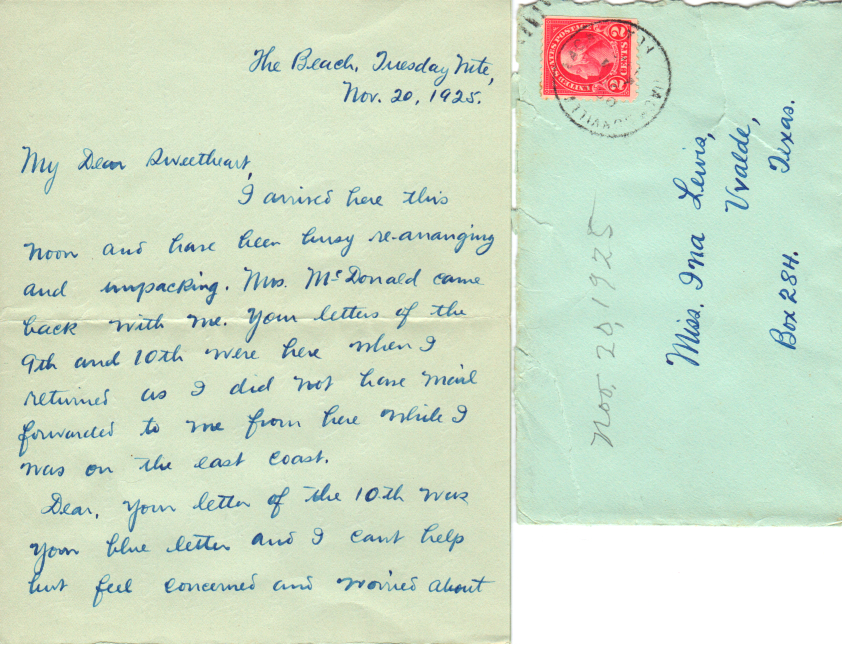 The Beach, Tuesday Nite,
Nov. 20, 1925.
My Dear Sweetheart,
I arrived here this
noon and have been busy re-arranging
and unpacking. Mrs. McDonald came
back with me. Your letters of the
9th and 10th were here when I
returned as I did not have mail
forwarded to me from here while I
was on the east coast.
Dear, your letter of the 10th was
your blue letter and I can't help
but feel concerned and worried about
UNITED STATES POSTAGE
2 CENTS 2
JACKSONVILLE
Miss. Ina Lewis,
Uvalde,
Texas.
Box 284.
Nov. 20, 1925